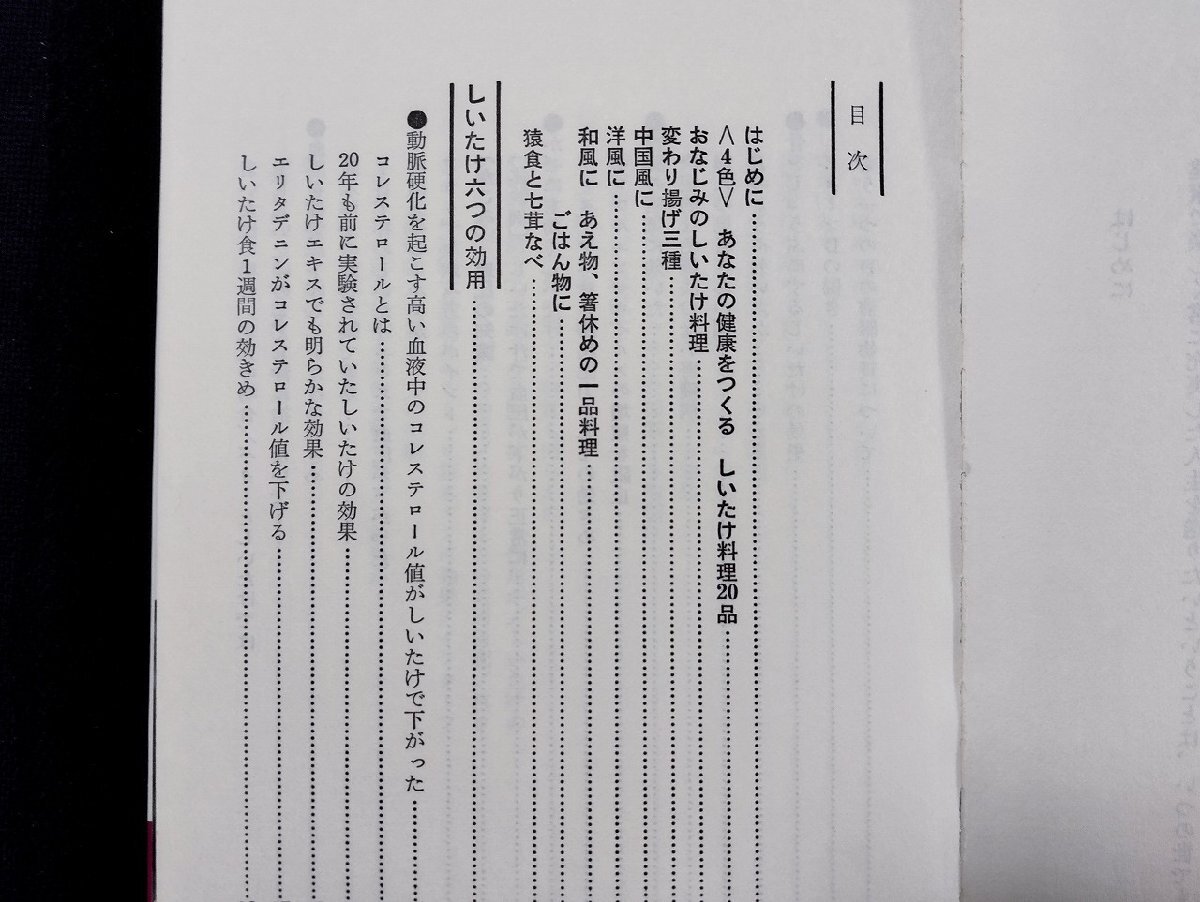 目次
はじめに
〈4色〉 あなたの健康をつくる しいたけ料理20品
おなじみのしいたけ料理
変わり揚げ三種
中国風に
洋風に
和風に あえ物、箸休めの一品料理
ごはん物に
猿食と七茸なべ
しいたけ六つの効用
●動脈硬化を起こす高い血液中のコレステロール値がしいたけで下がった
コレステロールとは
20年も前に実験されていたしいたけの効果
しいたけエキスでも明らかな効果
エリタデニンがコレステロール値を下げる
しいたけ食1週間の効きめ